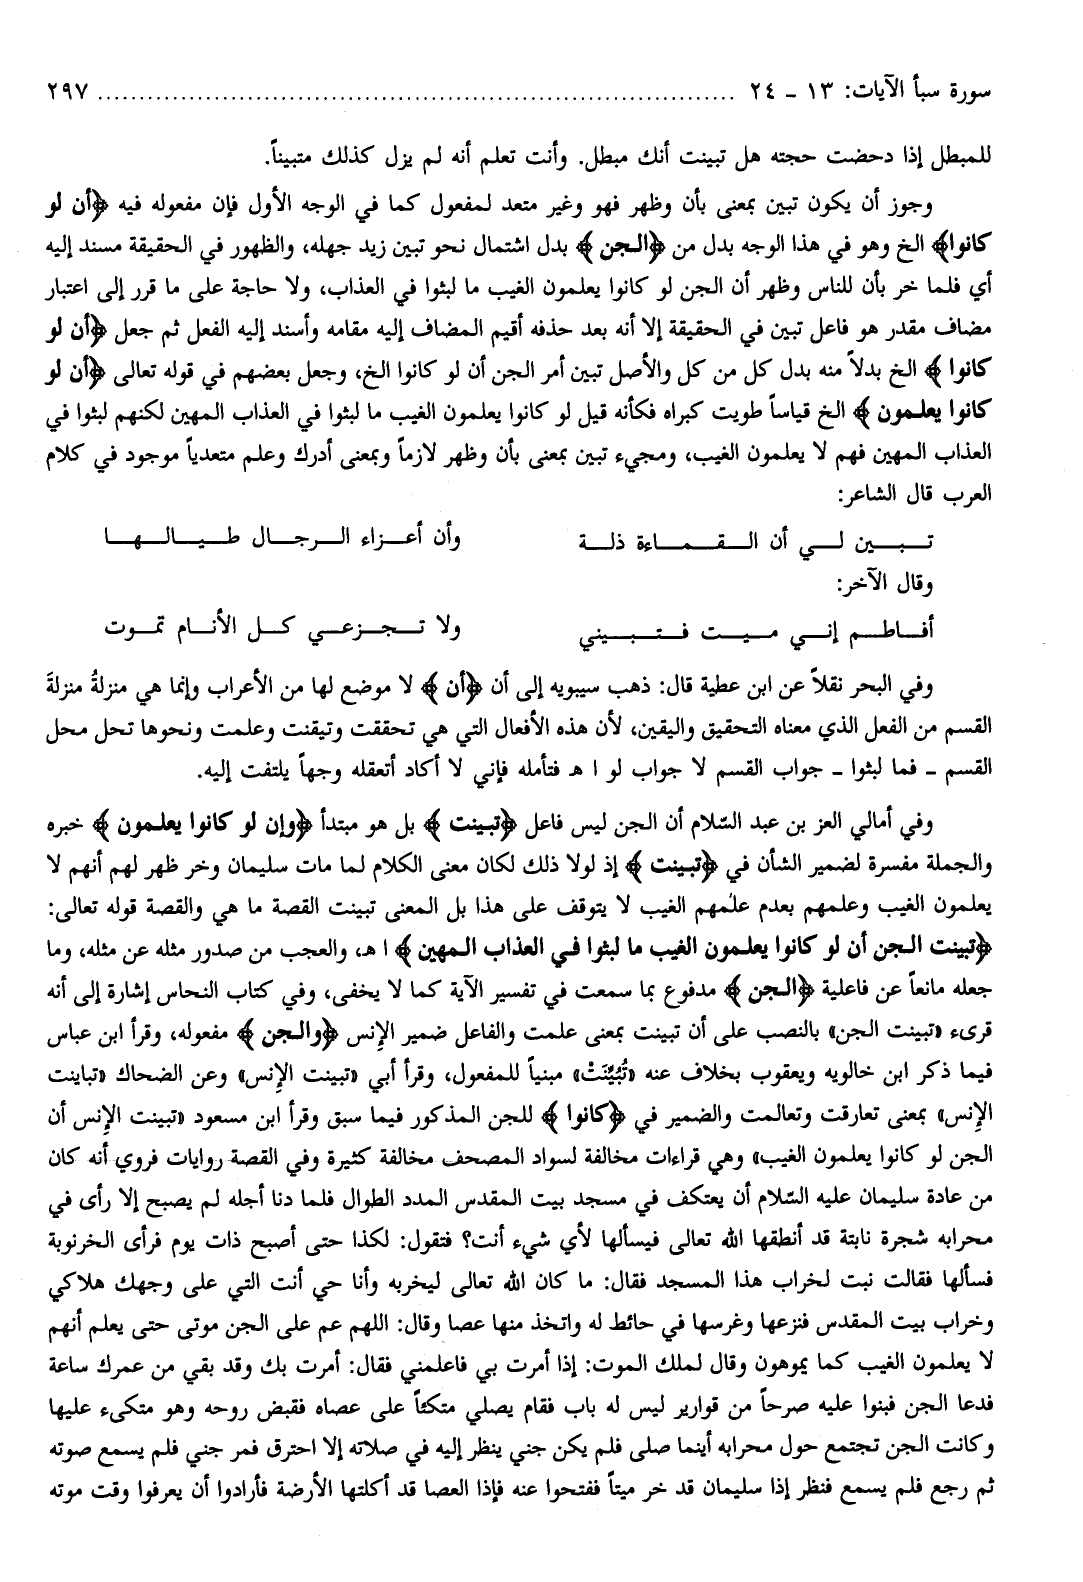 سورة سبأ الآيات: ١٣ ـ ٢٤ ........................................................................... ٢٩٧
للمبطل إذا دحضت حجته هل تبينت أنك مبطل. وأنت تعلم أنه لم يزل كذلك متبيناً.
وجوز أن يكون تبين بمعنى بأن وظهر فهو وغير متعد لمفعول كما في الوجه الأول فإن مفعوله فيه ﴿أن لو
كانوا﴾ الخ وهو في هذا الوجه بدل من ﴿الجن﴾ بدل اشتمال نحو تبين زيد جهله، والظهور في الحقيقة مسند إليه
أي فلما خر بأن للناس وظهر أن الجن لو كانوا يعلمون الغيب ما لبثوا في العذاب، ولا حاجة على ما قرر إلى اعتبار
مضاف مقدر هو فاعل تبين في الحقيقة إلا أنه بعد حذفه أقيم المضاف إليه مقامه وأسند إليه الفعل ثم جعل ﴿أن لو
كانوا﴾ الخ بدلاً منه بدل كل من كل والأصل تبين أمر الجن أن لو كانوا الخ، وجعل بعضهم في قوله تعالى ﴿أن لو
كانوا يعلمون﴾ الخ قياساً طويت كبراه فكأنه قيل لو كانوا يعلمون الغيب ما لبثوا في العذاب المهين لكنهم لبثوا في
العذاب المهين فهم لا يعلمون الغيب، ومجيء تبين بمعنى بأن وظهر لازماً وبمعنى أدرك وعلم متعدياً موجود في كلام
العرب قال الشاعر:
تبين لي أن القماءة ذلة وأن أعزاء الرجال طيالها
وقال الآخر:
أفاطم إني ميت فتبيني ولا تجزعي كل الأنام تموت
وفي البحر نقلاً عن ابن عطية قال: ذهب سيبويه إلى أن ﴿أن﴾ لا موضع لها من الأعراب وإنما هي منزلةُ منزلةَ
القسم من الفعل الذي معناه التحقيق واليقين، لأن هذه الأفعال التي هي تحققت وتيقنت وعلمت ونحوها تحل محل
القسم ـ فما لبثوا ـ جواب القسم لا جواب لو ا هـ فتأمله فإني لا أكاد أتعقله وجهاً يلتفت إليه.
وفي أمالي العز بن عبد السّلام أن الجن ليس فاعل ﴿تبينت﴾ بل هو مبتدأ ﴿وإن لو كانوا يعلمون﴾ خبره
والجملة مفسرة لضمير الشأن في ﴿تبينت﴾ إذ لولا ذلك لكان معنى الكلام لما مات سليمان وخر ظهر لهم أنهم لا
يعلمون الغيب وعلمهم بعدم علمهم الغيب لا يتوقف على هذا بل المعنى تبينت القصة ما هي والقصة قوله تعالى:
﴿تبينت الجن أن لو كانوا يعلمون الغيب ما لبثوا في العذاب المهين﴾ ا هـ، والعجب من صدور مثله عن مثله، وما
جعله مانعاً عن فاعلية ﴿الجن﴾ مدفوع بما سمعت في تفسير الآية كما لا يخفى، وفي كتاب النحاس إشارة إلى أنه
قرىء «تبينت الجن» بالنصب على أن تبينت بمعنى علمت والفاعل ضمير الإنس ﴿والجن﴾ مفعوله، وقرأ ابن عباس
فيما ذكر ابن خالويه ويعقوب بخلاف عنه «تُبُيِّنَتْ» مبنياً للمفعول، وقرأ أبي «تبينت الإنس» وعن الضحاك «تباينت
الإنس» بمعنى تعارقت وتعالمت والضمير في ﴿كانوا﴾ للجن المذكور فيما سبق وقرأ ابن مسعود «تبينت الإنس أن
الجن لو كانوا يعلمون الغيب» وهي قراءات مخالفة لسواد المصحف مخالفة كثيرة وفي القصة روايات فروي أنه كان
من عادة سليمان عليه السّلام أن يعتكف في مسجد بيت المقدس المدد الطوال فلما دنا أجله لم يصبح إلا رأى في
محرابه شجرة نابتة قد أنطقها الله تعالى فيسألها لأي شيء أنت؟ فتقول: لكذا حتى أصبح ذات يوم فرأى الخرنوبة
فسألها فقالت نبت لخراب هذا المسجد فقال: ما كان الله تعالى ليخربه وأنا حي أنت التي على وجهك هلاكي
وخراب بيت المقدس فنزعها وغرسها في حائط له واتخذ منها عصا وقال: اللهم عم على الجن موتى حتى يعلم أنهم
لا يعلمون الغيب كما يموهون وقال لملك الموت: إذا أمرت بي فاعلمني فقال: أمرت بك وقد بقي من عمرك ساعة
فدعا الجن فبنوا عليه صرحاً من قوارير ليس له باب فقام يصلي متكئاً على عصاه فقبض روحه وهو متكىء عليها
وكانت الجن تجتمع حول محرابه أينما صلى فلم يكن جني ينظر إليه في صلاته إلا احترق فمر جني فلم يسمع صوته
ثم رجع فلم يسمع فنظر إذا سليمان قد خر ميتاً ففتحوا عنه فإذا العصا قد أكلتها الأرضة فأرادوا أن يعرفوا وقت موته